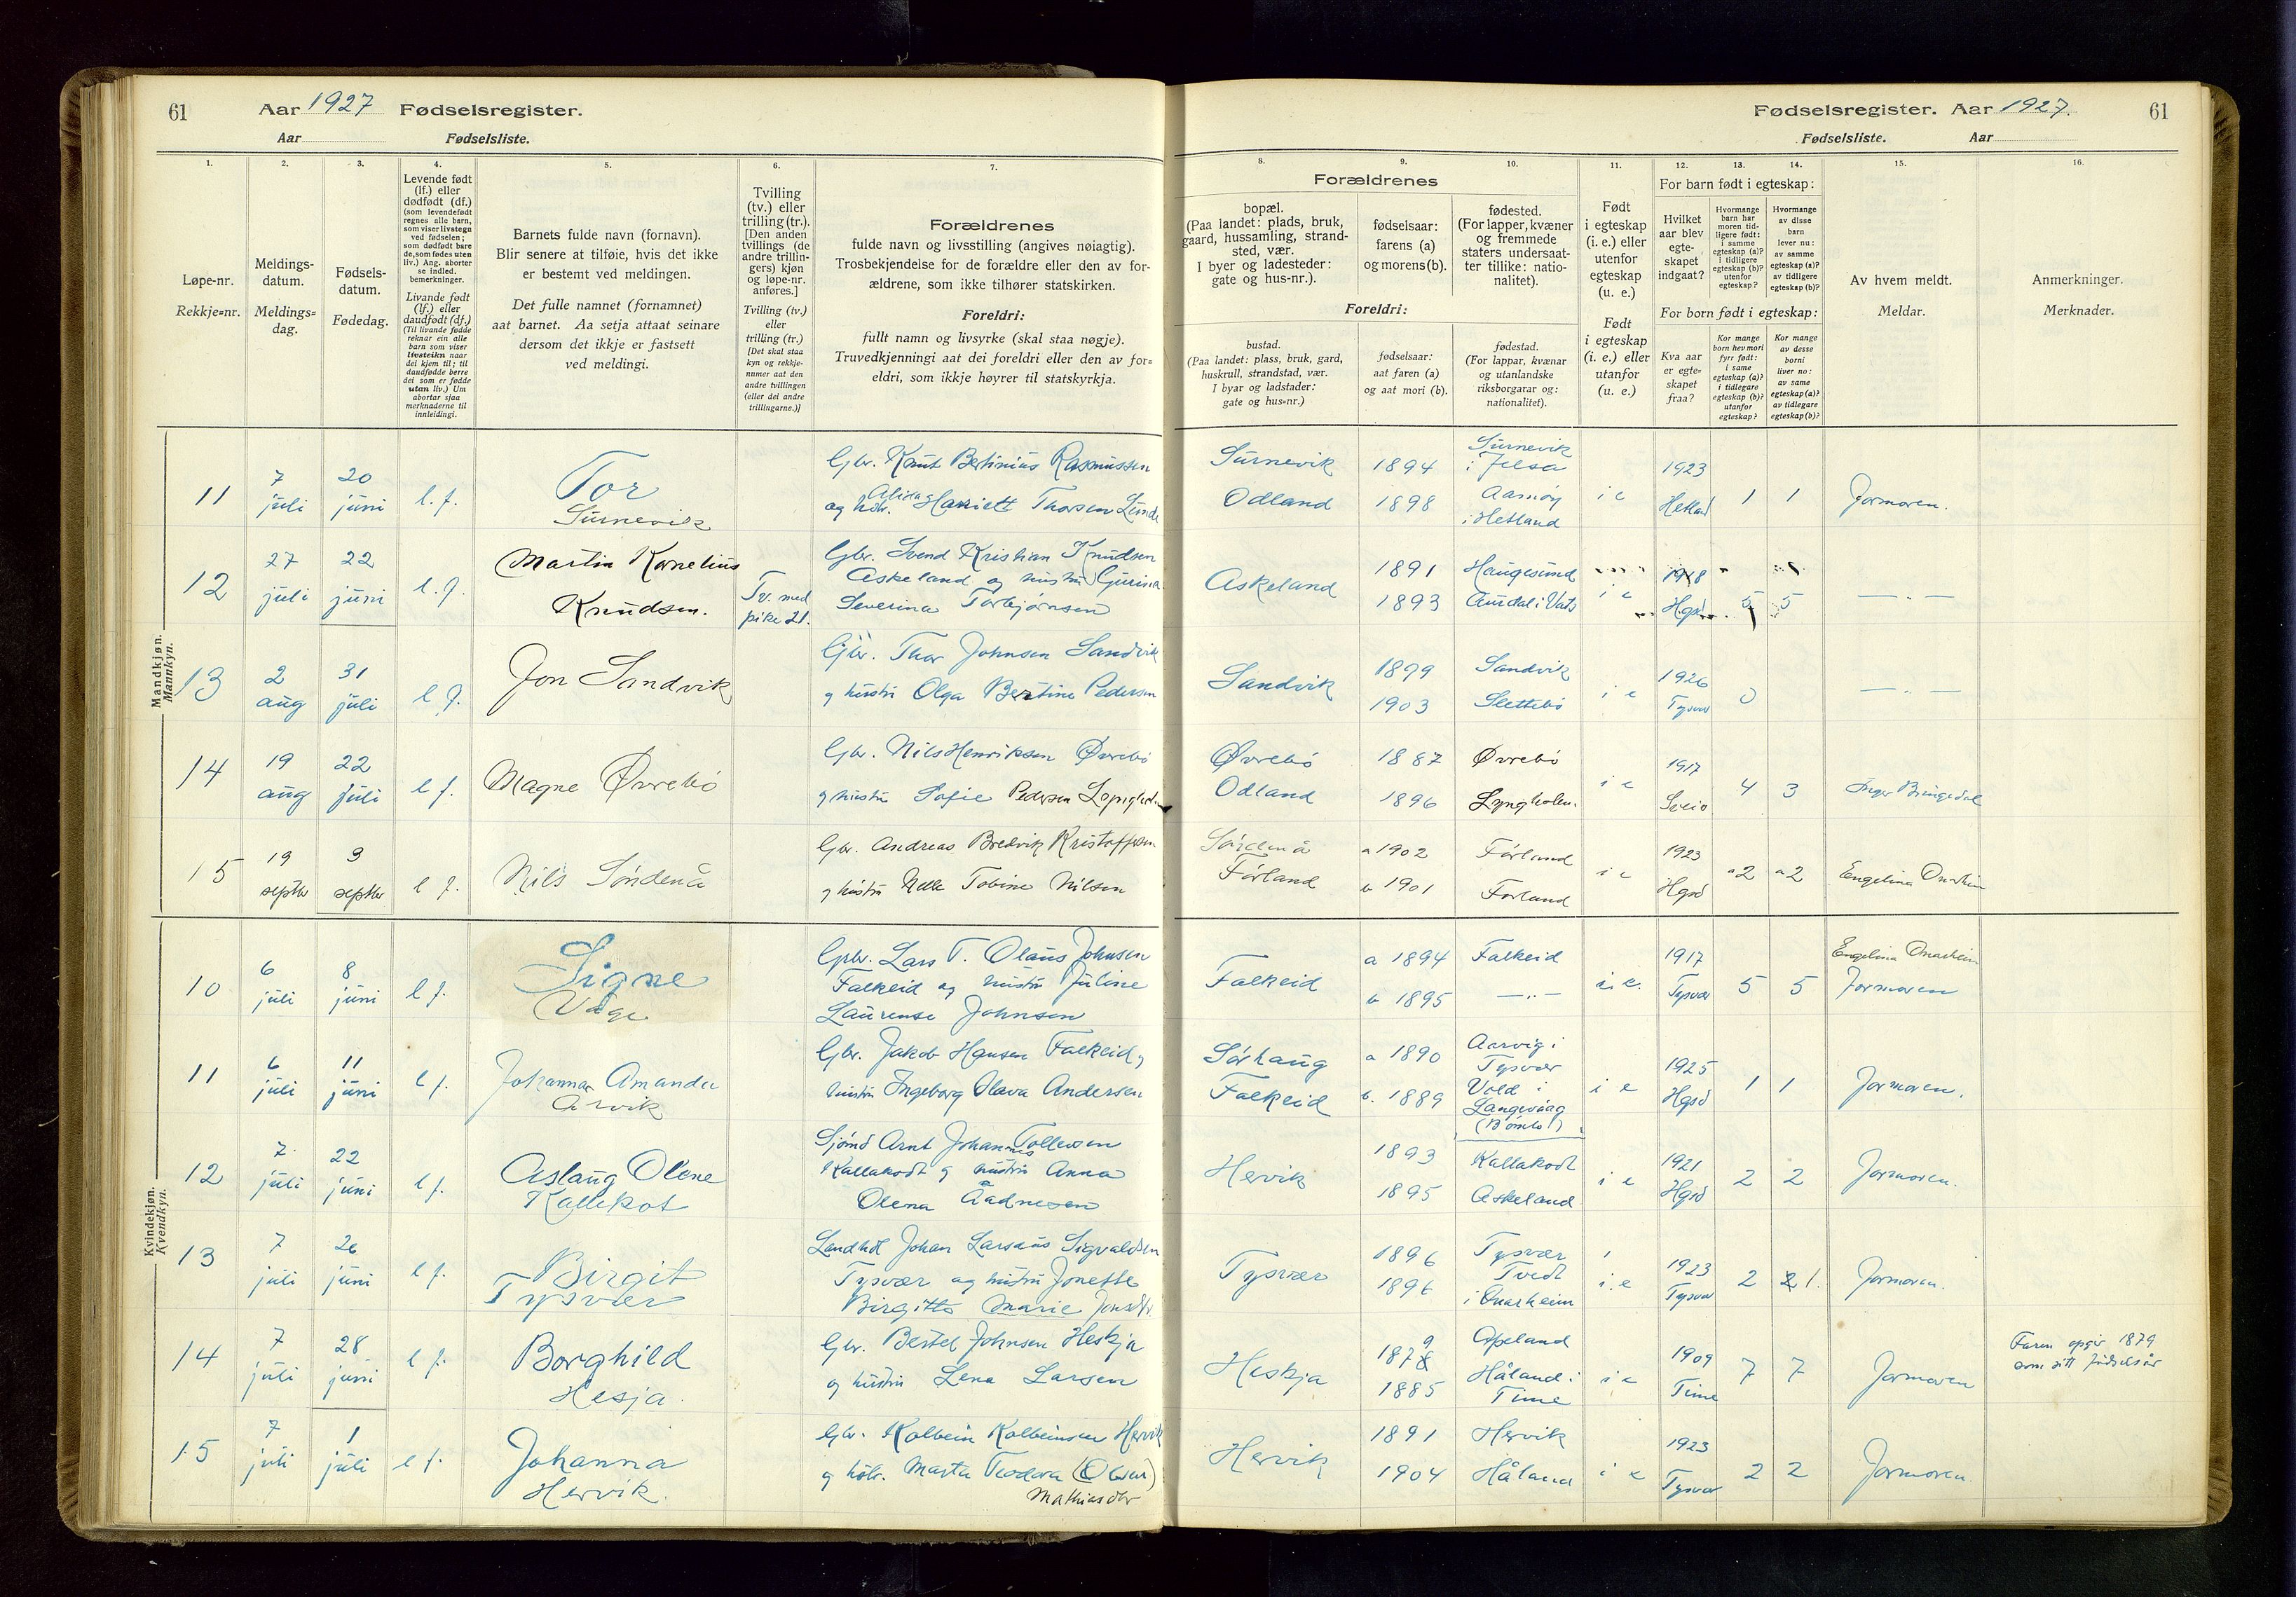 61 Aar 1927 Fødselsregister.
Aar Fødselsliste.
Fødselsregister. Aar 1927. 61
Fødselsliste. Aar
1. 2. 3. 4. 5. 6. 7.
Løpe-nr.
Rekkje=nr.
Meldings-
datum.
Meldings=
dag.
Fødsels-
datum.
Fødedag.
Levende født
(lf.) eller
dødfødt (df.)
(som levendefødt
regnes alle barn,
som viser livstegn
ved fødselen;
som dødfødt bare
de, som fødes uten
liv.) Ang. aborter
se indled.
bemerkninger.
Livande født
(lf.) eller
daudfødt (df.)
(Til livande fødde
reknar ein alle
barn som viser
livsteikn naar
dei kjem til; til
daudfødde berre
dei som er fødde
utan liv.) Um
abortar sjaa
merknaderne til
innleidingi.
Barnets fulde navn (fornavn).
Blir senere at tilføie, hvis det ikke
er bestemt ved meldingen.
Det fulle namnet (fornamnet)
aat barnet. Aa setja attaat seinare
dersom det ikkje er fastsett
ved meldingi.
Tvilling
(tv.) eller
trilling (tr.).
[Den anden
tvillings (de
andre trillin-
gers) kjøn
og løpe-nr.
anføres.]
Tvilling (tv.)
eller
trilling (tr.)
[Det skal staa
kyn og rekkje-
numer aat den
andre tvillingen
(eller dei andre
trillingarne.)]
Forældrenes
fulde navn og livsstilling (angives nøiagtig).
Trosbekjendelse for de forældre eller den av for-
ældrene, som ikke tilhører statskirken.
Foreldri:
fullt namn og livsyrke (skal staa nøgje).
Truvedkjenningi aat dei foreldri eller den av for=
eldri, som ikkje høyrer til statskyrkja.
8. 9. 10. 11. 12. 13. 14. 15. 16.
Forældrenes
bopæl.
(Paa landet: plads, bruk,
gaard, hussamling, strand-
sted, vær.
I byer og ladesteder:
gate og hus-nr.).
fødselsaar:
farens (a)
og morens (b).
fødested.
(For lapper, kvæner
og fremmede
staters undersaat-
ter tillike: natio-
nalitet).
Foreldri:
bustad.
(Paa landet: plass, bruk, gard,
huskrull, strandstad, vær.
I byar og ladstader:
gate og hus=nr.)
fødselsaar:
aat faren (a)
og aat mori (b).
fødestad.
(For lappar, kvænar
og utanlandske
riksborgarar og:
nationalitet).
Født
i egteskap
(i. e.) eller
utenfor
egteskap
(u. e.)
Født
i egteskap
(i. e.) eller
utanfor
(u. e.)
For barn født i egteskap:
Hvilket
aar blev
egte-
skapet
indgaat?
Hvormange
barn har
moren tid-
ligere født:
i samme
egteskap (a)?
i tidligere
egteskap (b)?
utenfor
egteskap?
Hvormange
av disse
barn
lever nu:
av samme
egteskap (a)?
av tidligere
egteskap (b)?
For born født i egteskap:
Kva aar
er egte=
skapet
fraa?
Kor mange
born hev mori
fyrr født:
i same
egteskap (a)?
i tidlegare
egteskap (b)?
utanfor
egteskap?
Kor mange
av desse
borni
liver no:
av same
egteskap (a)?
av tidlegare
egteskap (b)?
Av hvem meldt.
Meldar.
Anmerkninger.
Merknader.
Mandkjøn.
Mannkyn.
11 7 juli 20 juni l. f. Tor Surnevik
Gbr. Knut Bertinius Rasmussen
og hstr. Alida Harriett Thorsen Lunde
Surnevik Odland 1894 1898 Surnevik i Jelsa Aamøy i Hetland i e 1923 Hetland 1 1 Jormoren.
12 27 juli 22 juni l. f. Martin Kornelius Knudsen. Tv. med pike 21.
Gbr. Svend Kristian Knudsen
Askeland og hustru Gurina
Severina Torbjørnsen
Askeland 1891 1893 Haugesund Aundal i Vats i e 1918 Hgsd 5 5 — " —
13 2 aug 31 juli l f. Jon Sandvik
Gbr. Thor Johnsen Sandvik
og hustru Olga Bertine Pedersen
Sandvik 1899 1903 Sandvik Slettebö i e 1926 Tysvær 0 — " —
14 19 aug 22 juli l f. Magne Øvrebö
Gbr. Nils Henriksen Øvrebö
og hustru Sofie Pedersen Lyngholm
Øvrebö Odland 1887 1896 Øvrebö Lyngholm. i e 1917 Sveio 4 3 Inger Bringedal
15 19 septbr 3 septbr l f. Nils Söndenå
Gbr. Andreas Bredvik Kristoffersen
og hustru Nelle Tobine Nilsen
Söndenå Förland a 1902 b 1901 Förland Förland i e 1923 Hgsd a 2 a 2 Engelina
Kvindekjøn.
Kvendkyn.
10 6 juli 8 juni l f. Signe Våge
Gbr. Lars T. Olaus Johnsen
Falkeid og hustru Juline
Laurense Johnsen
Falkeid a 1894 b 1895 Falkeid — " — i. e. 1917 Tysvær 5 5 Engelina Jormoren
11 6 juli 11 juni l f. Johanna Amanda Arvik
Gbr. Jakob Hansen Falkeid og
hustru Ingeborg Olava Andersen
Sörhaug Falkeid a 1890 b. 1889 Aarvig i Tysvær Vold i Langevaag (Bömlo) i e 1925 Hgsd 1 1 Jormoren.
12 7. juli 22 juni l f. Aslaug Olene Kallekot
Sjömd Arnt Johannes Tollevsen
Kallakodt og hustru Anna
Olena Aadnesen
Hervik 1893 1895 Kallakodt Askeland i e 1921 Hgsd 2 2 Jormoren.
13 7 juli 26 juni l f. Birgit Tysvær
Landhdl Johan Larsius Sigvaldsen
Tysvær og hustru Jonette
Birgitte Marie Jonsdtr.
Tysvær 1896 1896 Tysvær Tvedt i Imarkeim i. e 1923 Tysvær 2 2 1. Jormoren.
14 7 juli 28 juni l f. Borghild Hesja
Gbr. Bertel Johnsen Heskja
og hustru Lena Larsen
Heskja 1878 9 1885 Apeland Håland i Time i e 1909 Time 7 7 Jormoren
Faren opgir 1879
som sitt födselsår
15 7 juli 1 juli l f. Johanna Hervik.
Gbr. Kolbein Kolbeinsen Hervik
og hstr. Marta Teodora (Olsen)
Mathiasdtr
Hervik 1891 1904 Hervik Håland i e 1923 Tysvær 2 2 Jormoren.